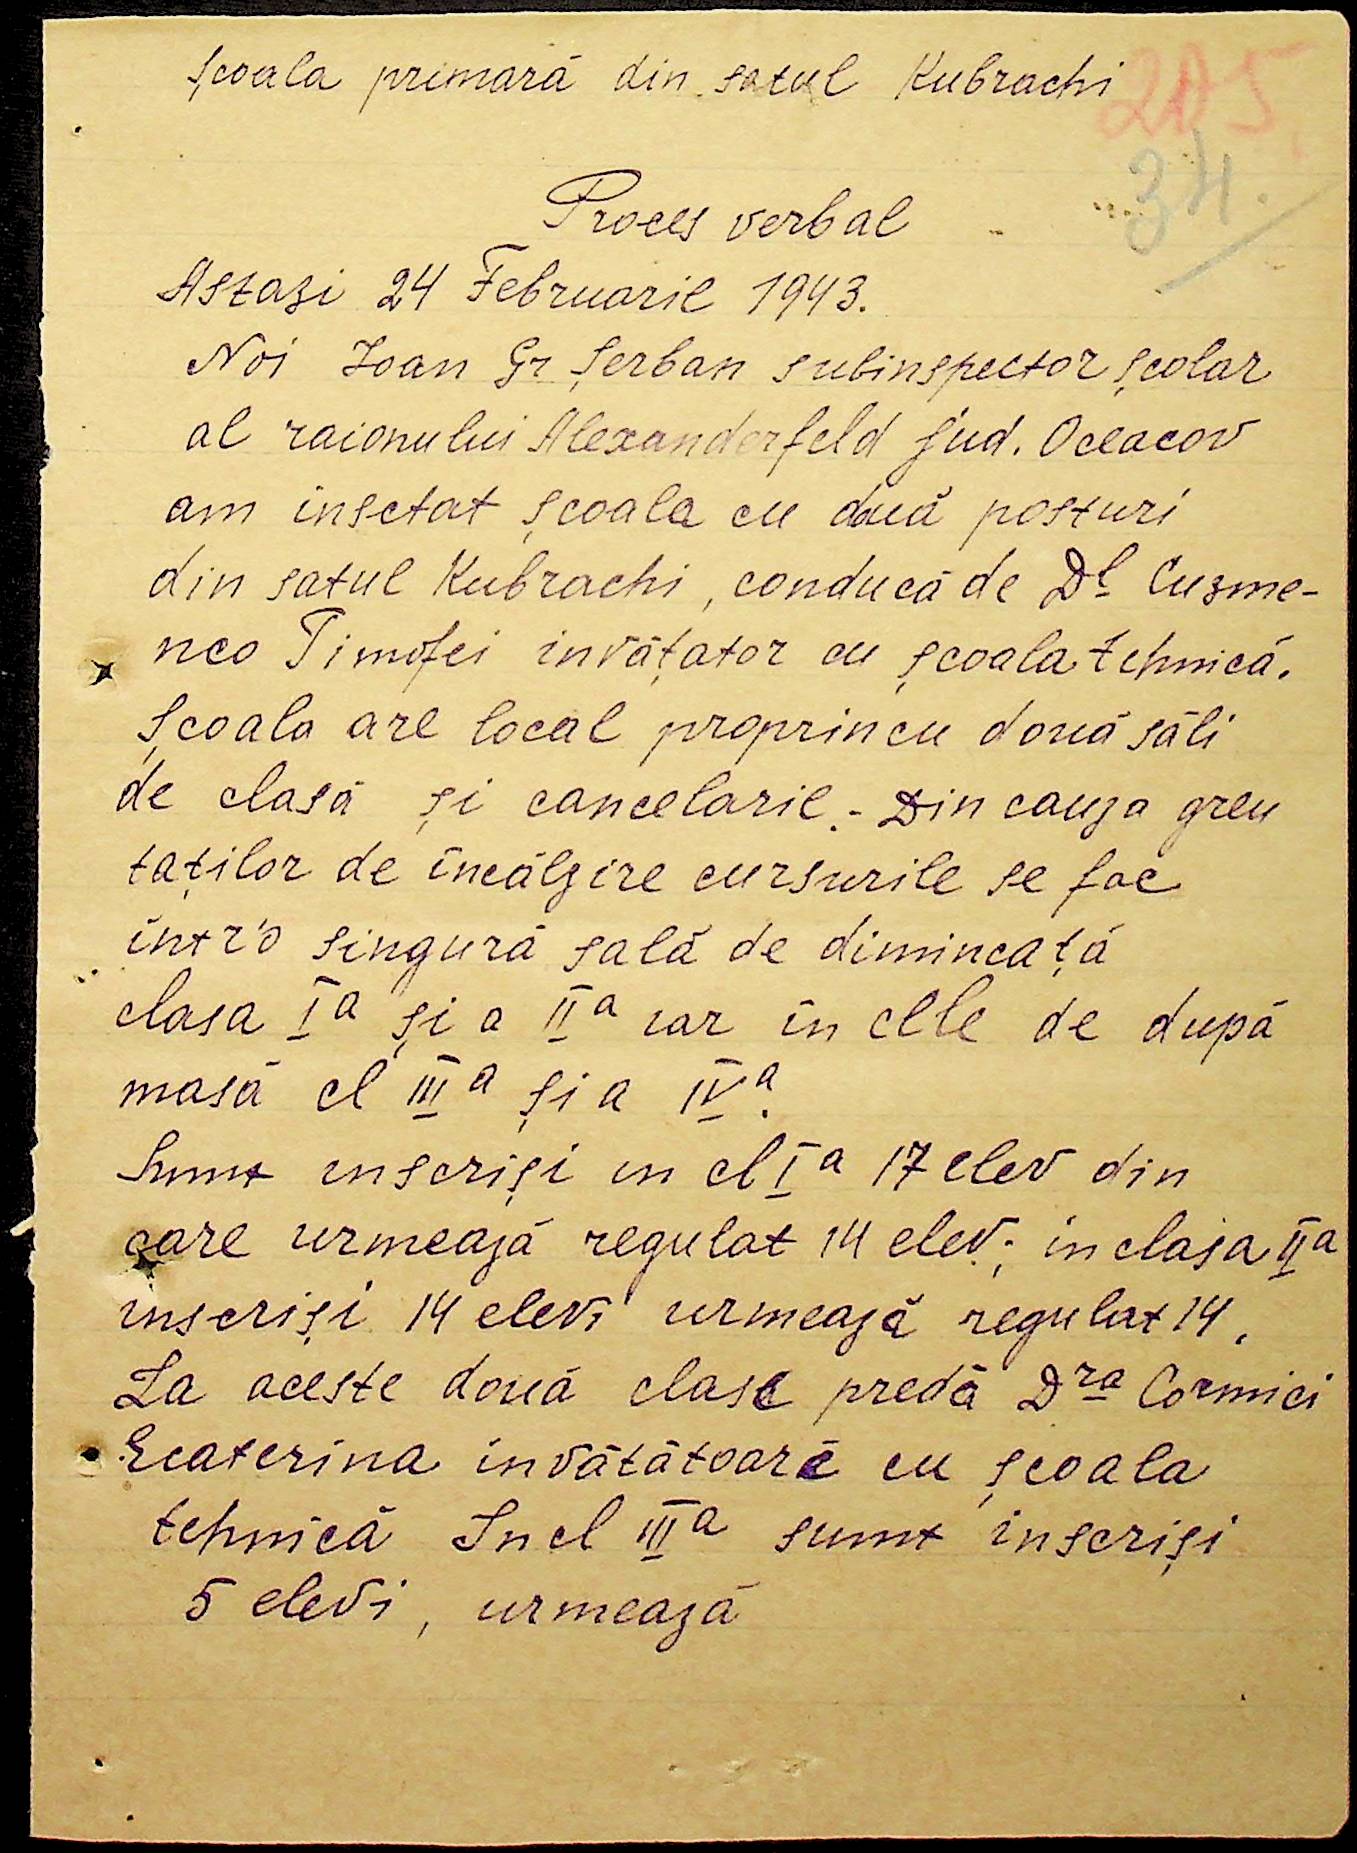 Școala primară din satul Kubrachi
205
34.
Proces verbal
Astazi 24 Februarie 1943.
Noi Ioan Gr Șerban subinspector școlar
al raionului Alexanderfeld jud. Oceacov
am insctat școala cu două posturi
din satul Kubrachi, conducă de Dl Cuzme-
nco Timofei invățator cu școala tehnică.
Școala are local propriu cu două săli
de clasă și cancelarie.- Din cauza greu
taților de încălzire cursurile se fac
într'o singură sală de dimineață
clasa Ia și a IIa iar în cele de după
masă cl IIIa și a IVa.
Sunt inscriși in cl Ia 17 elev din
care urmează regulat 14 elev; in clasa IIa
inscriși 14 elevi urmează regulat 14,
La aceste două clase predă Dra Cormici
Ecaterina invătătoare cu școala
tehnică In cl IIIa sunt inscriși
5 elevi, urmează